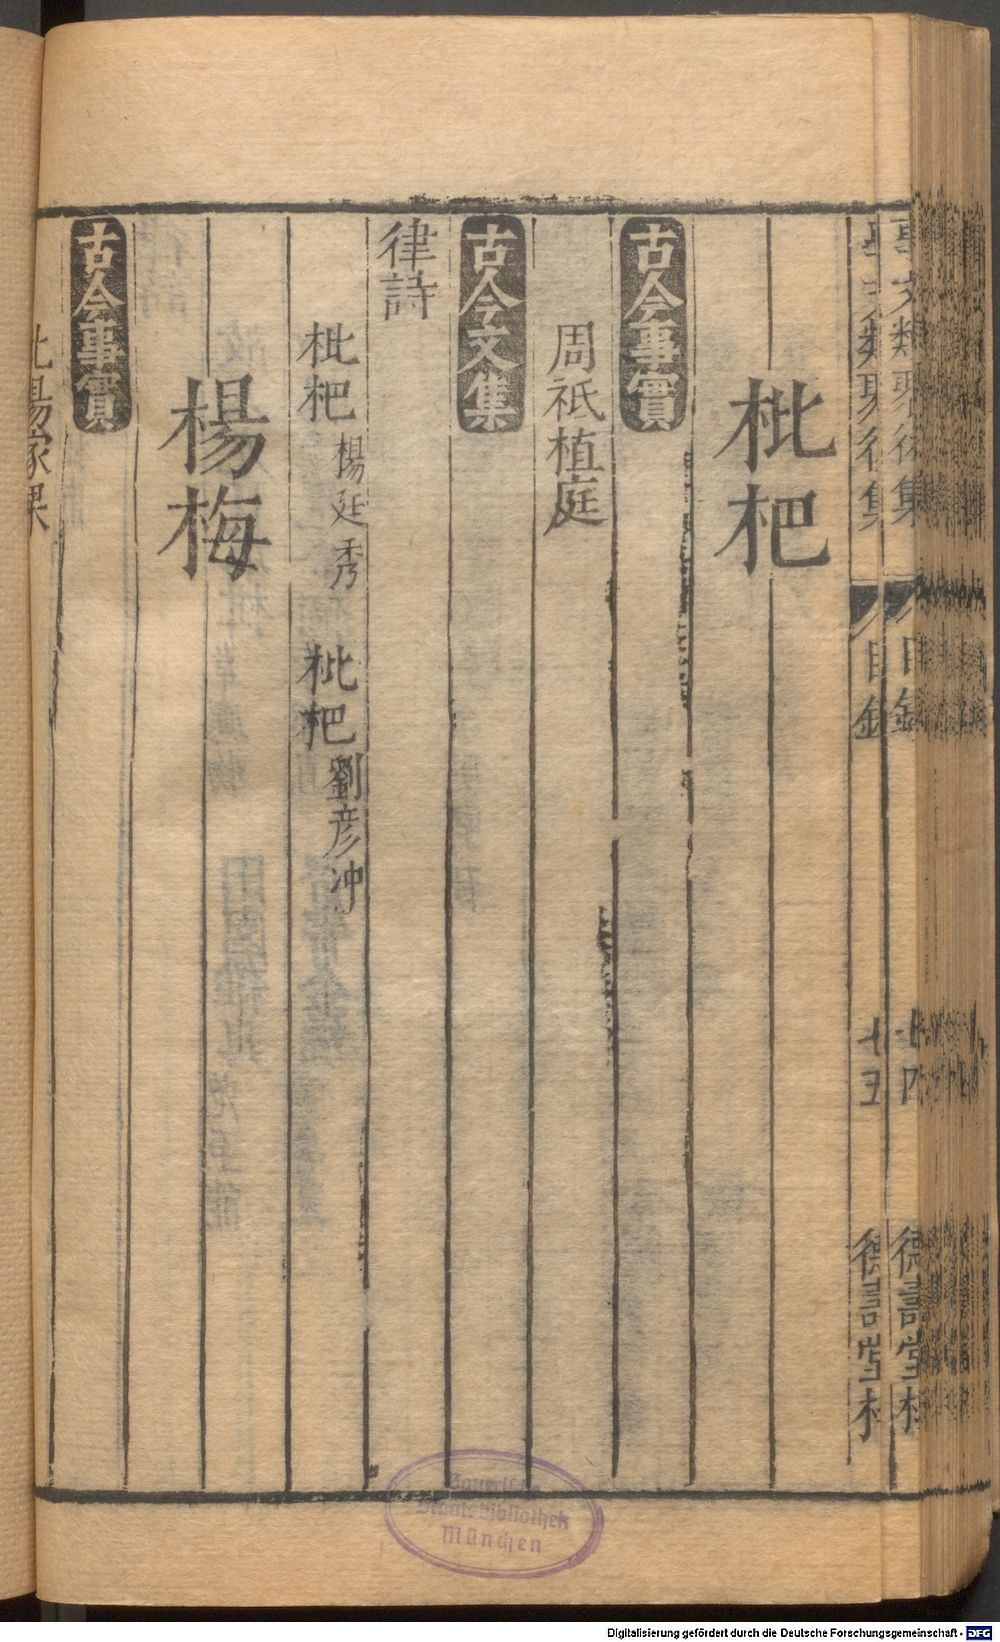 枇杷
古今事實
周祇植庭
古今文集
律詩
枇杷 楊延秀 枇杷 劉彦冲
楊梅
古今事實
此楊家果
事文類聚後集
目錄
十四
德壽堂梓
目錄
十五
德壽堂梓
Bayerische
Staatsbibliothek
München
Digitalisierung gefördert durch die Deutsche Forschungsgemeinschaft - DFG